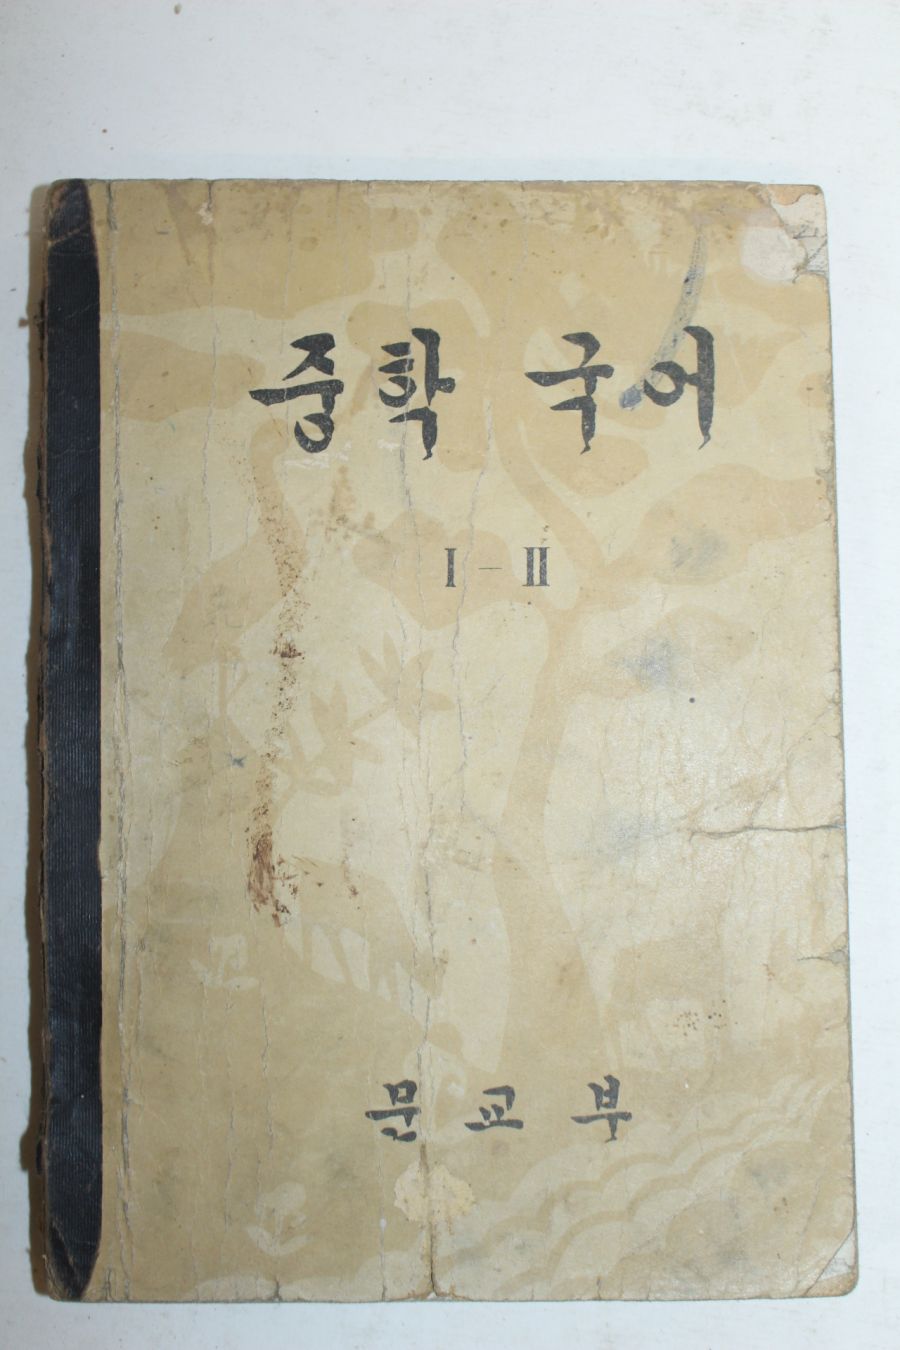 중학 국어
I - II
문교부